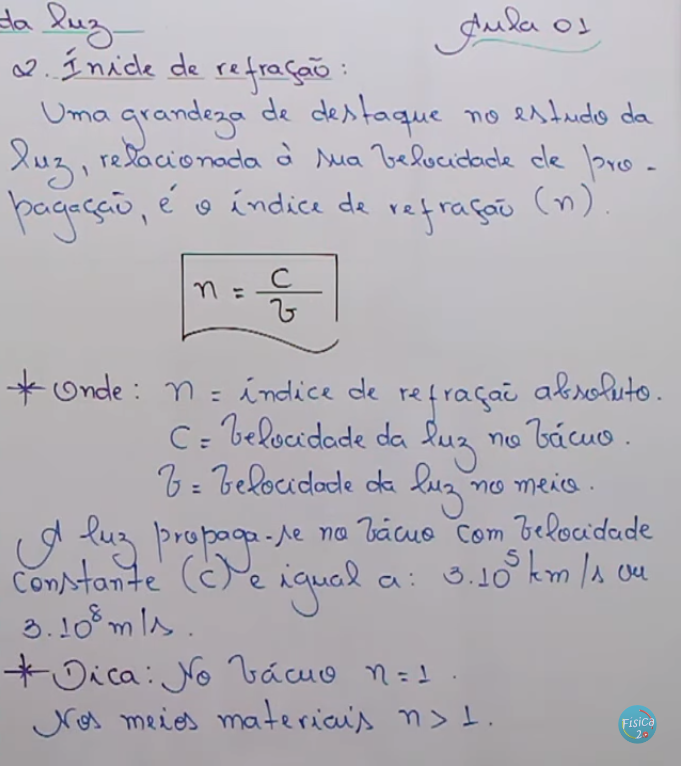 da luz
Aula 01
2. Ínide de refração:
Uma grandeza de destaque no estudo da
luz, relacionada à sua velocidade de pro-
pagação, é o índice de refração (n).
n = c/v
* Onde: n = índice de refração absoluto.
C = Velocidade da luz no vácuo.
v = Velocidade da luz no meio.
A luz propaga-se no vácuo com velocidade
constante (c) e igual a: 3.10⁵ km/s ou
3.10⁸ m/s.
* Dica: No vácuo n = 1.
Nos meios materiais n > 1.
Física
2.